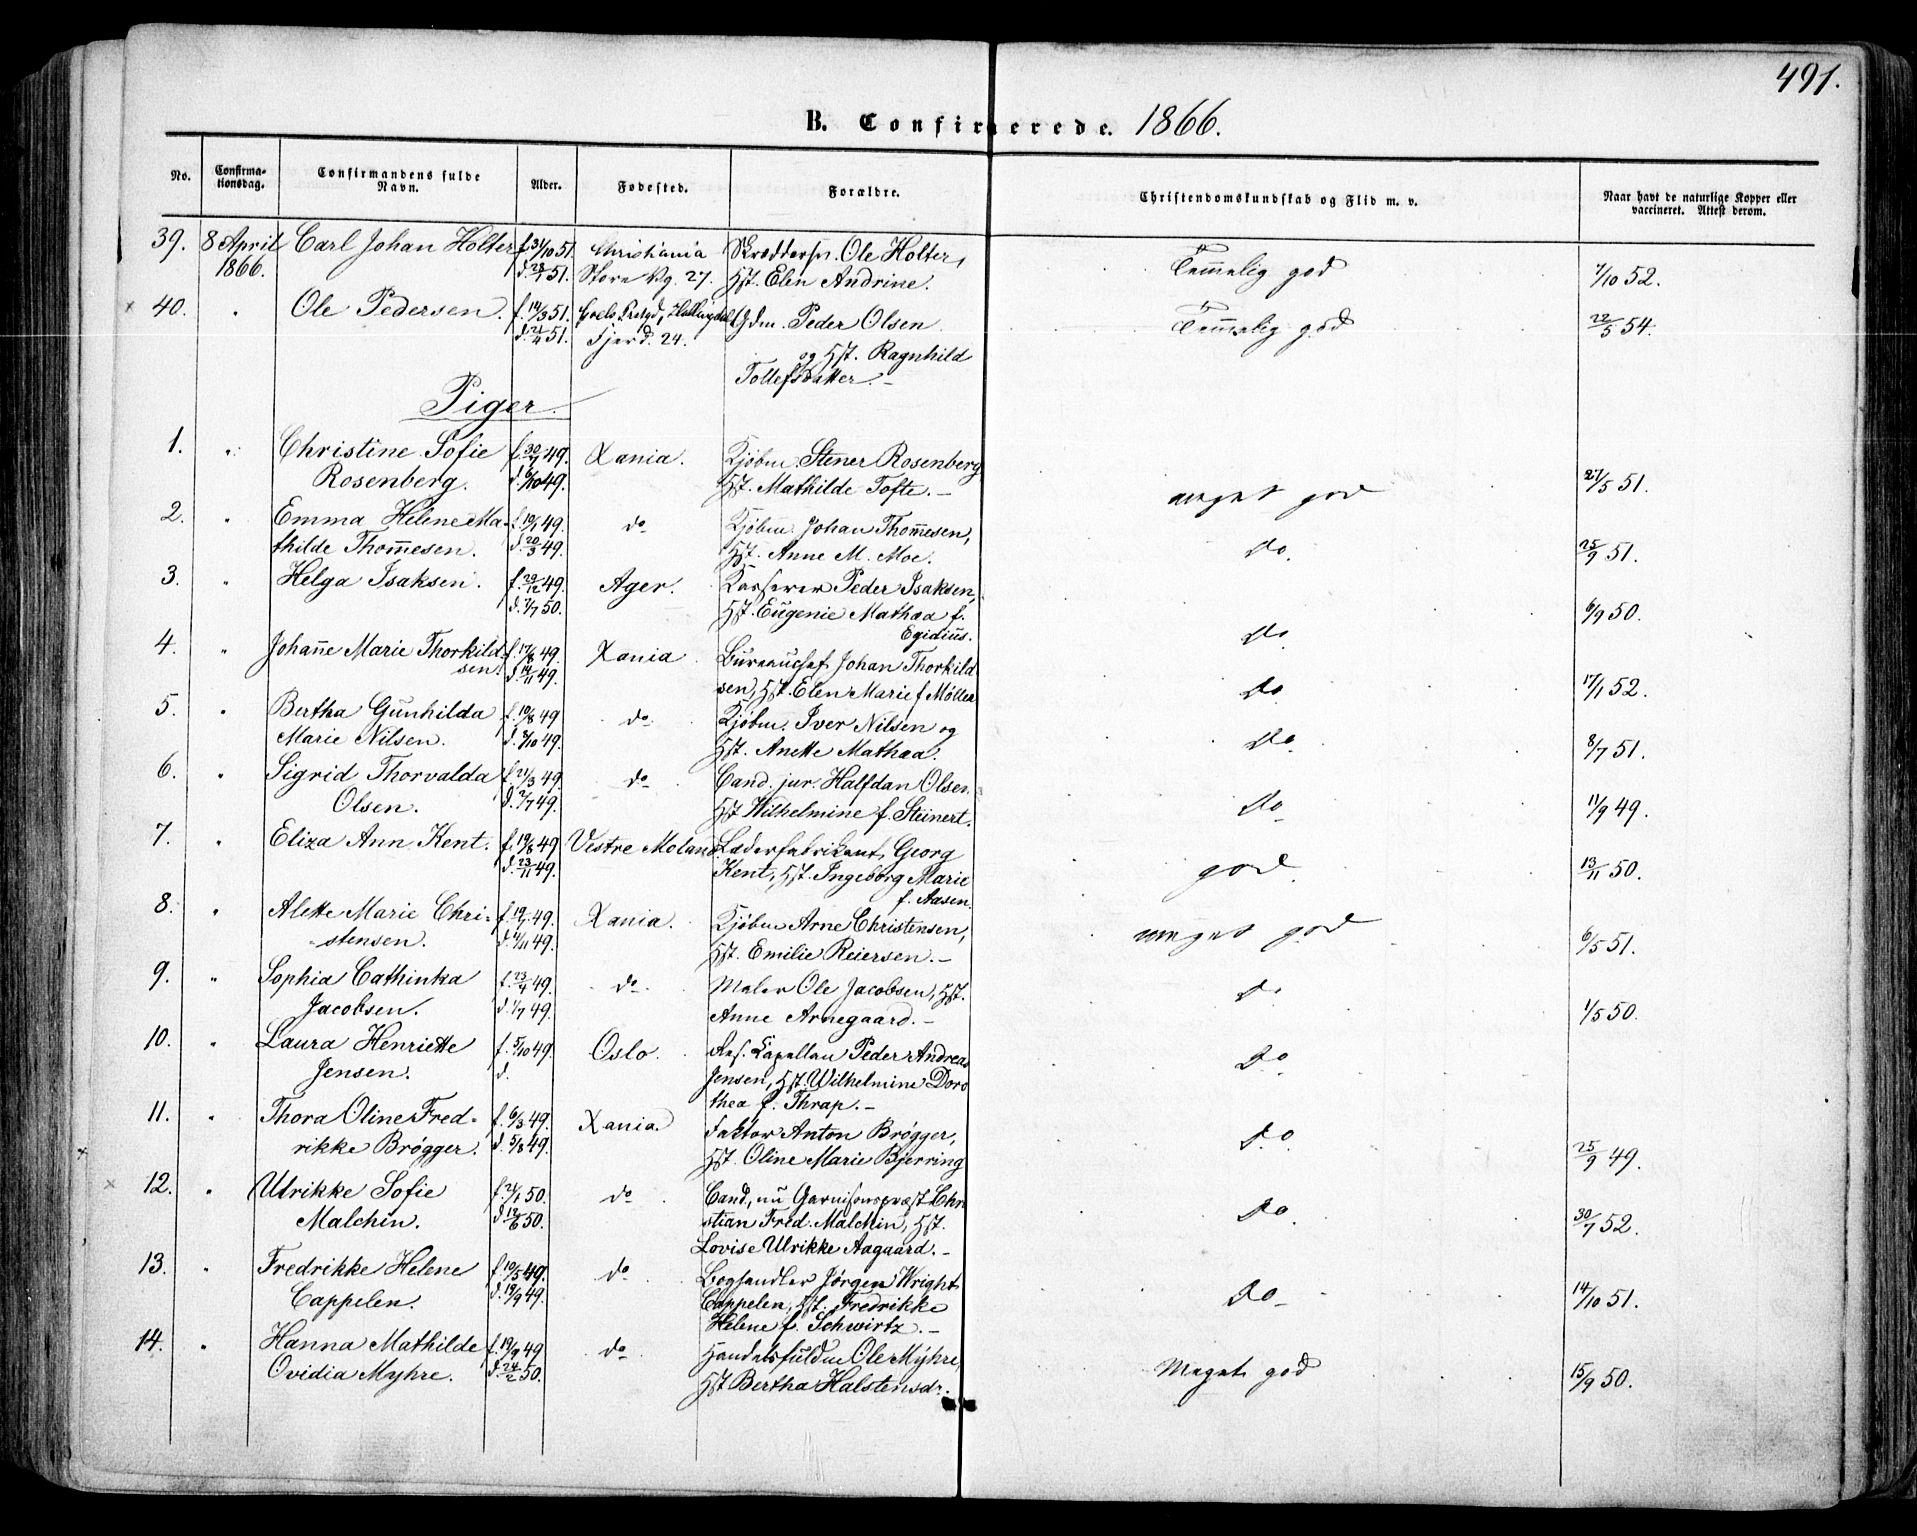 491.
B. Confirmerede. 1866.
No.
Confirma-
tionsdag.
Confirmandens fulde
Navn.
Alder.
Fødested.
Forældre.
Christendomskundskab og Flid m. v.
Naar havt de naturlige Kopper eller
vaccineret. Attest derom.
39. 8 April Carl Johan Holter f. 31/10 51. Christiania Skræddersv. Ole Holter,
1866. d. 28/ 51. Store Vg. 27. Hst. Elen Andrine. Temmelig god 7/10 52.
40. " Ole Pedersen. f. 14/3 51. Hallingdal Gdm. Peder Olsen Temmelig god 22/5 54.
d. 21/4 51. Fjerd. 24.
og Hst. Ragnhild
Tollefsdatter. -
Piger.
1. " Christine Sofie f. 30/7 49. Xania. Kjøbm. Stener Rosenberg
Rosenberg. d. 6/10 49. Hst. Mathilde Tofte. - meget god 27/5 51.
2. " Emma Helene Ma- f. 19/1 49. do Kjøbm. Johan Thom̄esen,
thilde Thom̄esen. d. 20/3 49. Hst. Anne M. Moe. do. 25/9 51.
3. " Helga Isaksen. f. 29/12 49. Ager. Kasserer Peder Isaksen,
d. 7/7 50. Hst. Eugenie Mathea f. 6/9 50.
Egidius. do.
4. " Johan̄e Marie Thorkild- f. 17/8 49. Xania Bureauchef Johan Thorkild
sen. d. 14/11 49. sen, Hst. Elen Marie f. Møller do 17/1 52.
5. " Bertha Gunhilda f. 10/8 49 do Kjøbm. Iver Nilsen og
Marie Nilsen. d. 7/10 49. Hst. Anette Mathea. do. 8/7 51.
6. " Sigrid Thorvalda f. 21/3 49. do Cand. jur. Halfdan Olsen.
Olsen. d. 2/7 49. Hst Wilhelmine f. Steinert. do 11/9 49.
7. " Eliza Ann Kent. f. 19/8 49 Vestre Moland Læderfabrikant Georg
d. 23/11 49. Kent, Hst. Ingeborg Marie god. 13/11 50.
f. Aasen.
8. " Alette Marie Chri- f. 19/7 49. Xania. Kjøbm Arne Christensen, meget god
stensen. d. 1/11 49. Hst. Emilie Reiersen. - 6/5 51.
9. " Sophia Cathinka f. 23/4 49. do Maler Ole Jacobsen, Hst. do
Jacobsen. d. 1/7 49. Anne Arnegaard. - 1/5 50.
10. " Laura Henriette f. 5/10 49. Oslo. Res. Capellan Peder Andreas do
Jensen. d. Jensen, Hst. Wilhelmine Doro
thea f. Thrap. -
11. " Thora Oline Fred- f. 6/3 49. Xania. Faktor Anton Brøgger, do.
rikke Brøgger. d. 5/8 49. Hst. Oline Marie Bjerring 25/9 49.
12. " Ulrikke Sofie f. 21/1 50. do Cand., nu Garnisonspræst Chri
Malchin. d. 12/6 50. stian Fred. Malchin, Hst. do. 30/7 52.
Lovise Ulrikke Aagaard. -
13. " Fredrikke Helene f. 10/5 49. do Boghandler Jørgen Wright
Cappelen. d. 19/9 49. Cappelen, Hst. Fredrikke do 14/10 51.
Helene f. Schwirtz. -
14. " Hanna Mathilde f. 19/9 49 do Handelsfuldm Ole Myhre,
Ovidia Myhre. d. 24/2 50. Hst Bertha Halstensdr. Meget god 15/9 50.